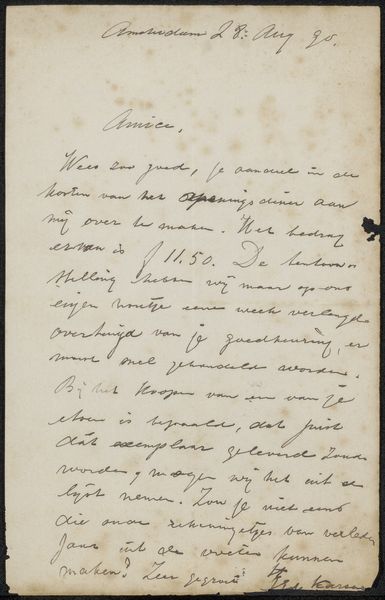 Amsterdam 28: Aug 90.
Amice,
Wees zoo goed, je aandeel in de
kosten van het openingsdiner aan
mij over te maken. Het bedrag
ervan is f 11.50. De tentoon-
stelling hebben wij maar op ons
eigen houtje eene week verlengd
overtuigd van je goedkeuring, er
moest snel gehandeld worden.
Bij het koopen van een van je
etsen is bepaald, dat juist
dát exemplaar geleverd zoude
worden, mogen wij het uit de
lijst nemen. Zou je niet eens
die onze rekeningetjes van verleden
jaar uit de voeten kunnen
maken? Zeer gegroet
Karsen